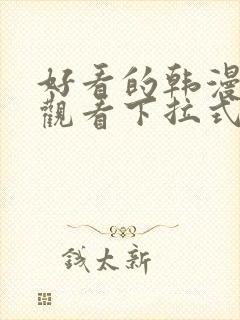 好看的韩漫
觀看下拉式
钱太新